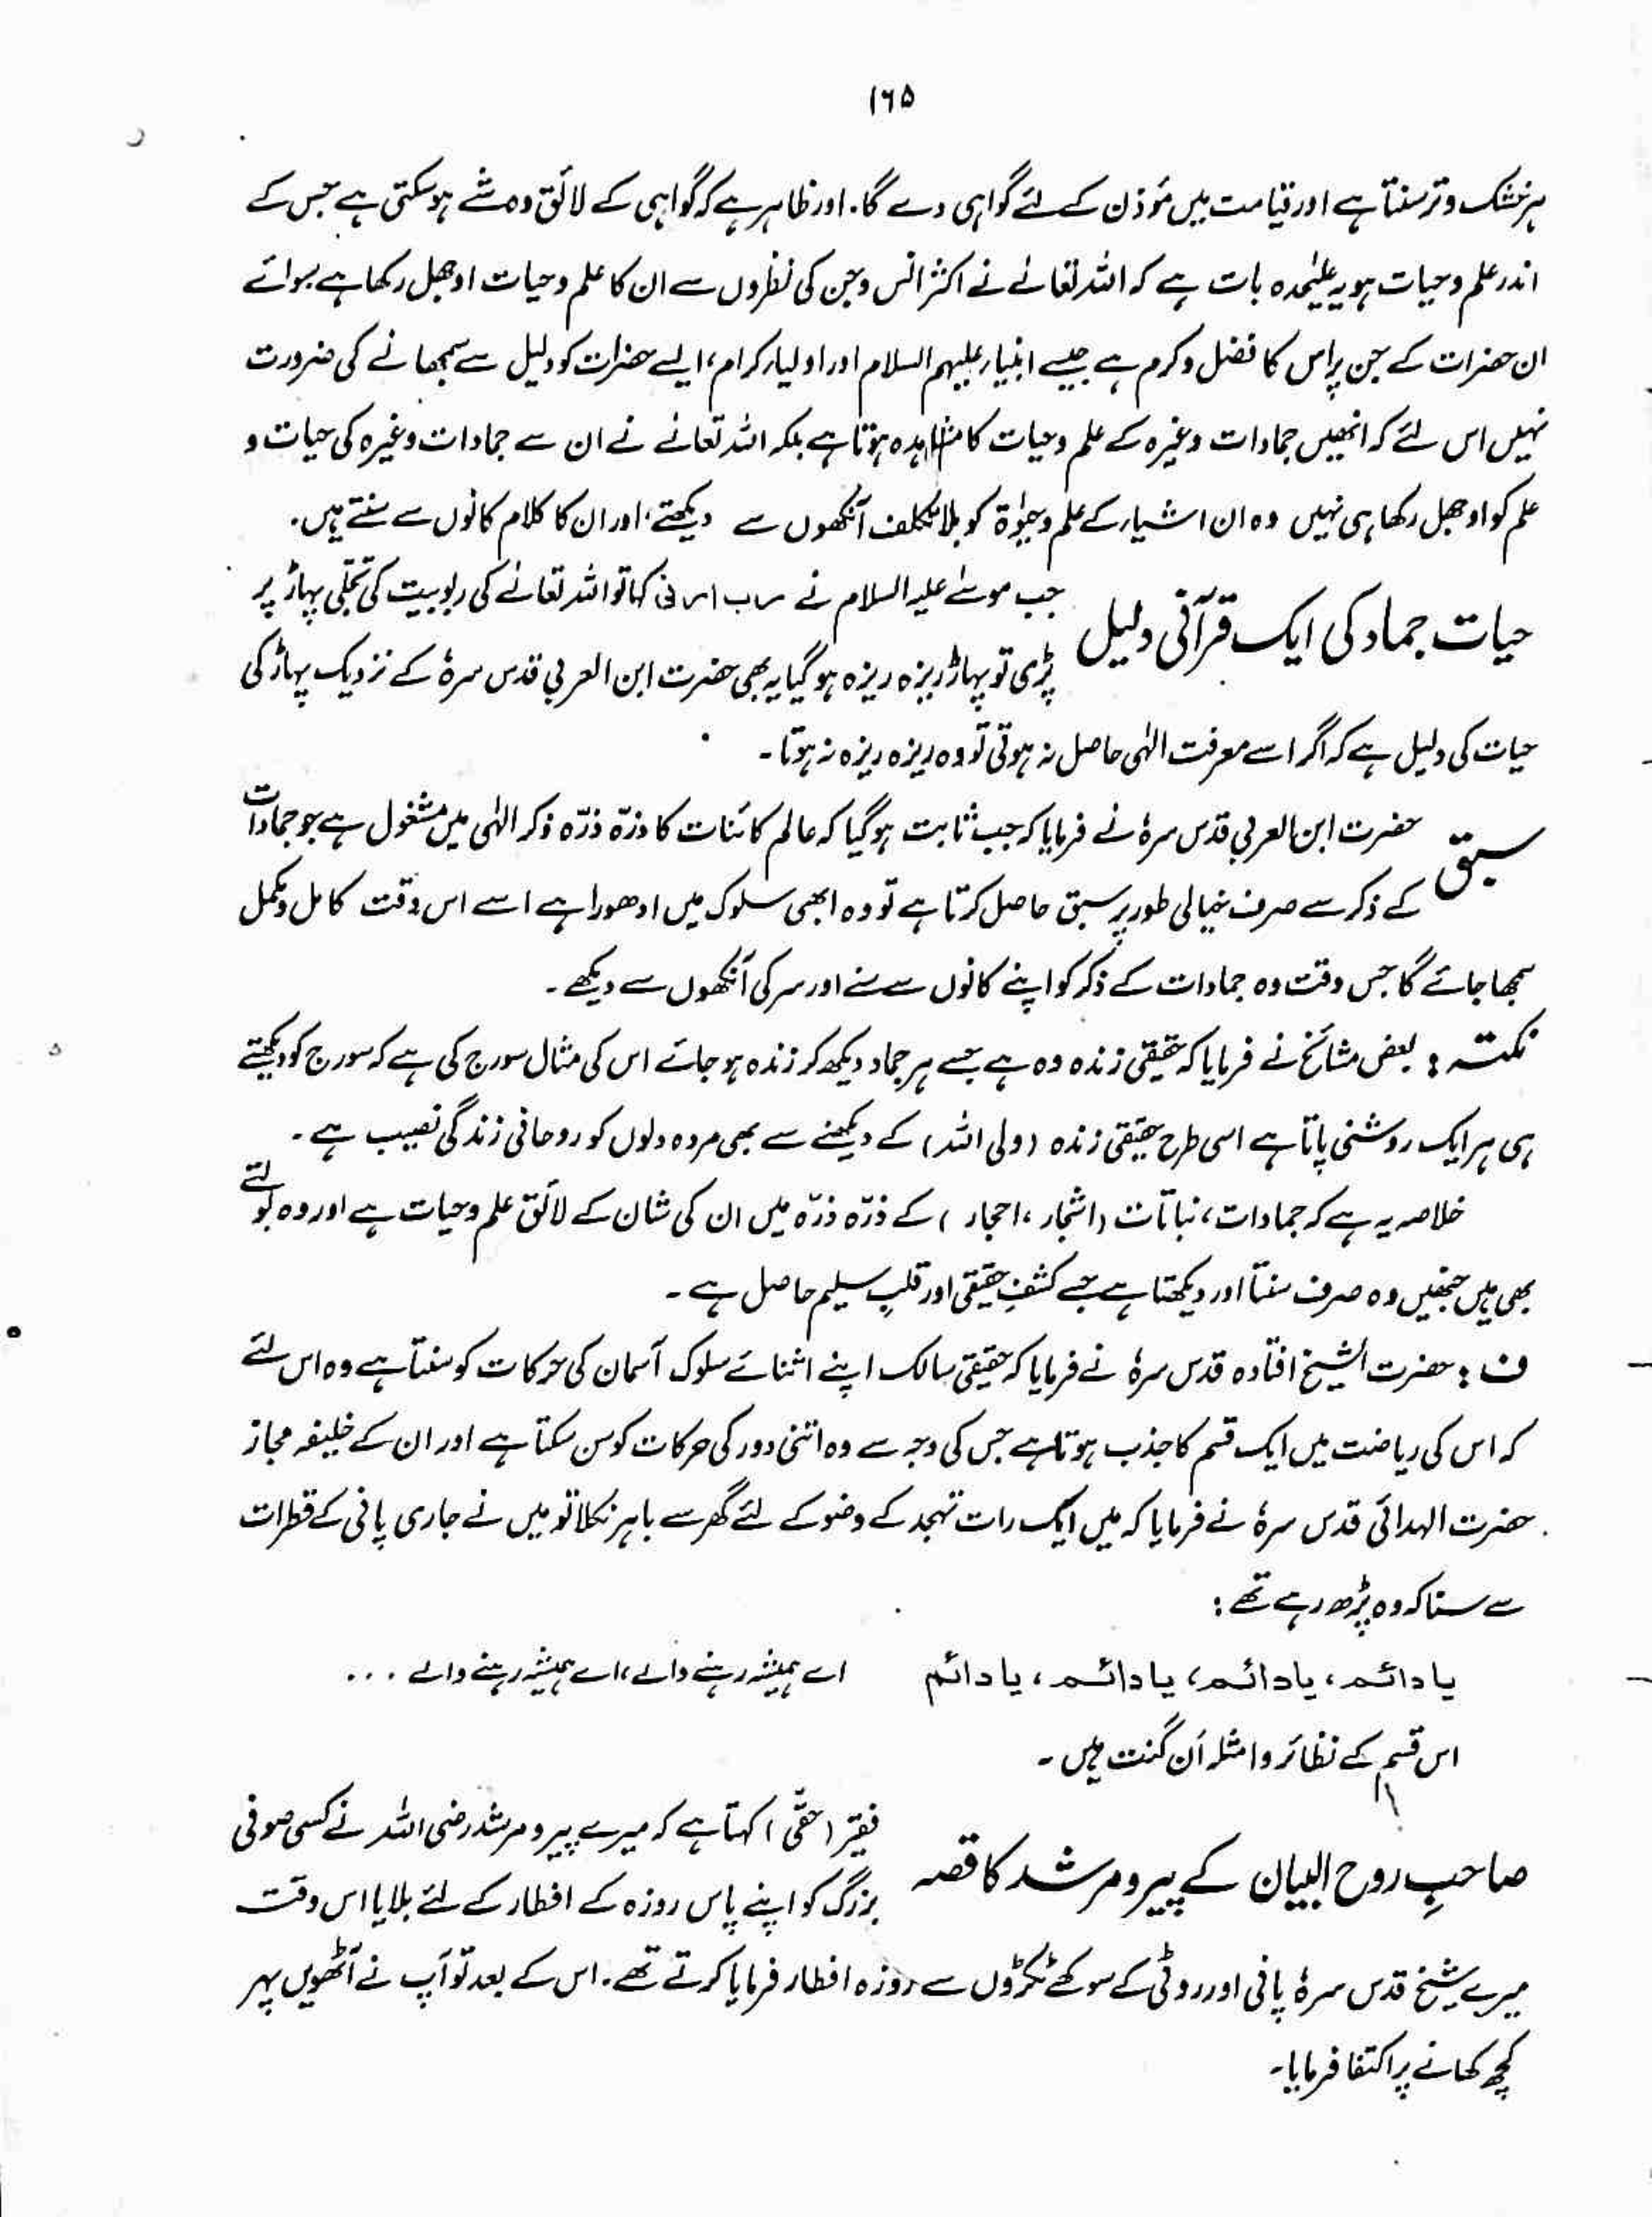 ۱۶۵
ہر خشک و تر سنتا ہے اور قیامت میں مؤذن کے لئے گواہی دے گا. اور ظاہر ہے کہ گواہی کے لائق وہ شے ہوسکتی ہے جس کے
اندر علم و حیات ہو یہ علیٰحدہ بات ہے کہ اللہ تعالےٰ نے اکثر انس و جن کی نظروں سے ان کا علم و حیات اوجھل رکھا ہے سوائے
ان حضرات کے جن پر اس کا فضل و کرم ہے جیسے انبیاء علیہم السلام اور اولیاء کرام، ایسے حضرات کو دلیل سے سمجھانے کی ضرورت
نہیں اس لئے کہ انھیں جمادات وغیرہ کے علم و حیات کا مشاہدہ ہوتا ہے بلکہ اللہ تعالےٰ نے ان سے جمادات وغیرہ کی حیات و
علم کو اوجھل رکھا ہی نہیں وہ ان اشیاء کے علم و حیٰوۃ کو بلا تکلف آنکھوں سے دیکھتے، اور ان کا کلام کانوں سے سنتے ہیں.
حیات جماد کی ایک قرآنی دلیل
جب موسےٰ علیہ السلام نے رب ارنی کہا تو اللہ تعالےٰ کی ربوبیت کی تجلّی پہاڑ پر
پڑی تو پہاڑ ریزہ ریزہ ہو گیا یہ بھی حضرت ابن العربی قدس سرہٗ کے نزدیک پہاڑ کی
حیات کی دلیل ہے کہ اگر اسے معرفت الٰہی حاصل نہ ہوتی تو وہ ریزہ ریزہ نہ ہوتا۔
سبق
حضرت ابن العربی قدس سرہٗ نے فرمایا کہ جب ثابت ہو گیا کہ عالم کائنات کا ذرّہ ذرّہ ذکر الٰہی میں مشغول ہے جو جمادات
کے ذکر سے صرف خیالی طور پر سبق حاصل کرتا ہے تو وہ ابھی سلوک میں ادھورا ہے اسے اس وقت کامل و مکمل
سمجھا جائے گا جس وقت وہ جمادات کے ذکر کو اپنے کانوں سے سنے اور سر کی آنکھوں سے دیکھے۔
نکتہ : بعض مشائخ نے فرمایا کہ حقیقی زندہ وہ ہے جسے ہر جماد دیکھ کر زندہ ہو جائے اس کی مثال سورج کی ہے کہ سورج کو دیکھتے
ہی ہر ایک روشنی پاتا ہے اسی طرح حقیقی زندہ (ولی اللہ) کے دیکھنے سے بھی مردہ دلوں کو روحانی زندگی نصیب ہے۔
خلاصہ یہ ہے کہ جمادات، نباتات (اشجار، احجار) کے ذرّہ ذرّہ میں ان کی شان کے لائق علم و حیات ہے اور وہ بولتے
بھی ہیں جنھیں وہ صرف سنتا اور دیکھتا ہے جسے کشفِ حقیقی اور قلبِ سلیم حاصل ہے۔
ف : حضرت الشیخ افتادہ قدس سرہٗ نے فرمایا کہ حقیقی سالک اپنے اثنائے سلوک آسمان کی حرکات کو سنتا ہے وہ اس لئے
کہ اس کی ریاضت میں ایک قسم کا جذب ہوتا ہے جس کی وجہ سے وہ اتنی دور کی حرکات کو سن سکتا ہے اور ان کے خلیفہ مجاز
حضرت الہدائی قدس سرہٗ نے فرمایا کہ میں ایک رات تہجد کے وضو کے لئے گھر سے باہر نکلا تو میں نے جاری پانی کے قطرات
سے سنا کہ وہ پڑھ رہے تھے :
یا دائم، یا دائم، یا دائم، یا دائم اے ہمیشہ رہنے والے، اے ہمیشہ رہنے والے ...
اس قسم کے نظائر و امثلہ اَن گنت ہیں۔
صاحبِ روح البیان کے پیر و مرشد کا قصہ
فقیر (حقّی) کہتا ہے کہ میرے پیر و مرشد رضی اللہ نے کسی صوفی
بزرگ کو اپنے پاس روزہ کے افطار کے لئے بلایا اس وقت
میرے شیخ قدس سرہٗ پانی اور روٹی کے سوکھے ٹکڑوں سے روزہ افطار فرمایا کرتے تھے. اس کے بعد تو آپ نے آٹھویں پہر
کچھ کھانے پر اکتفا فرمایا۔